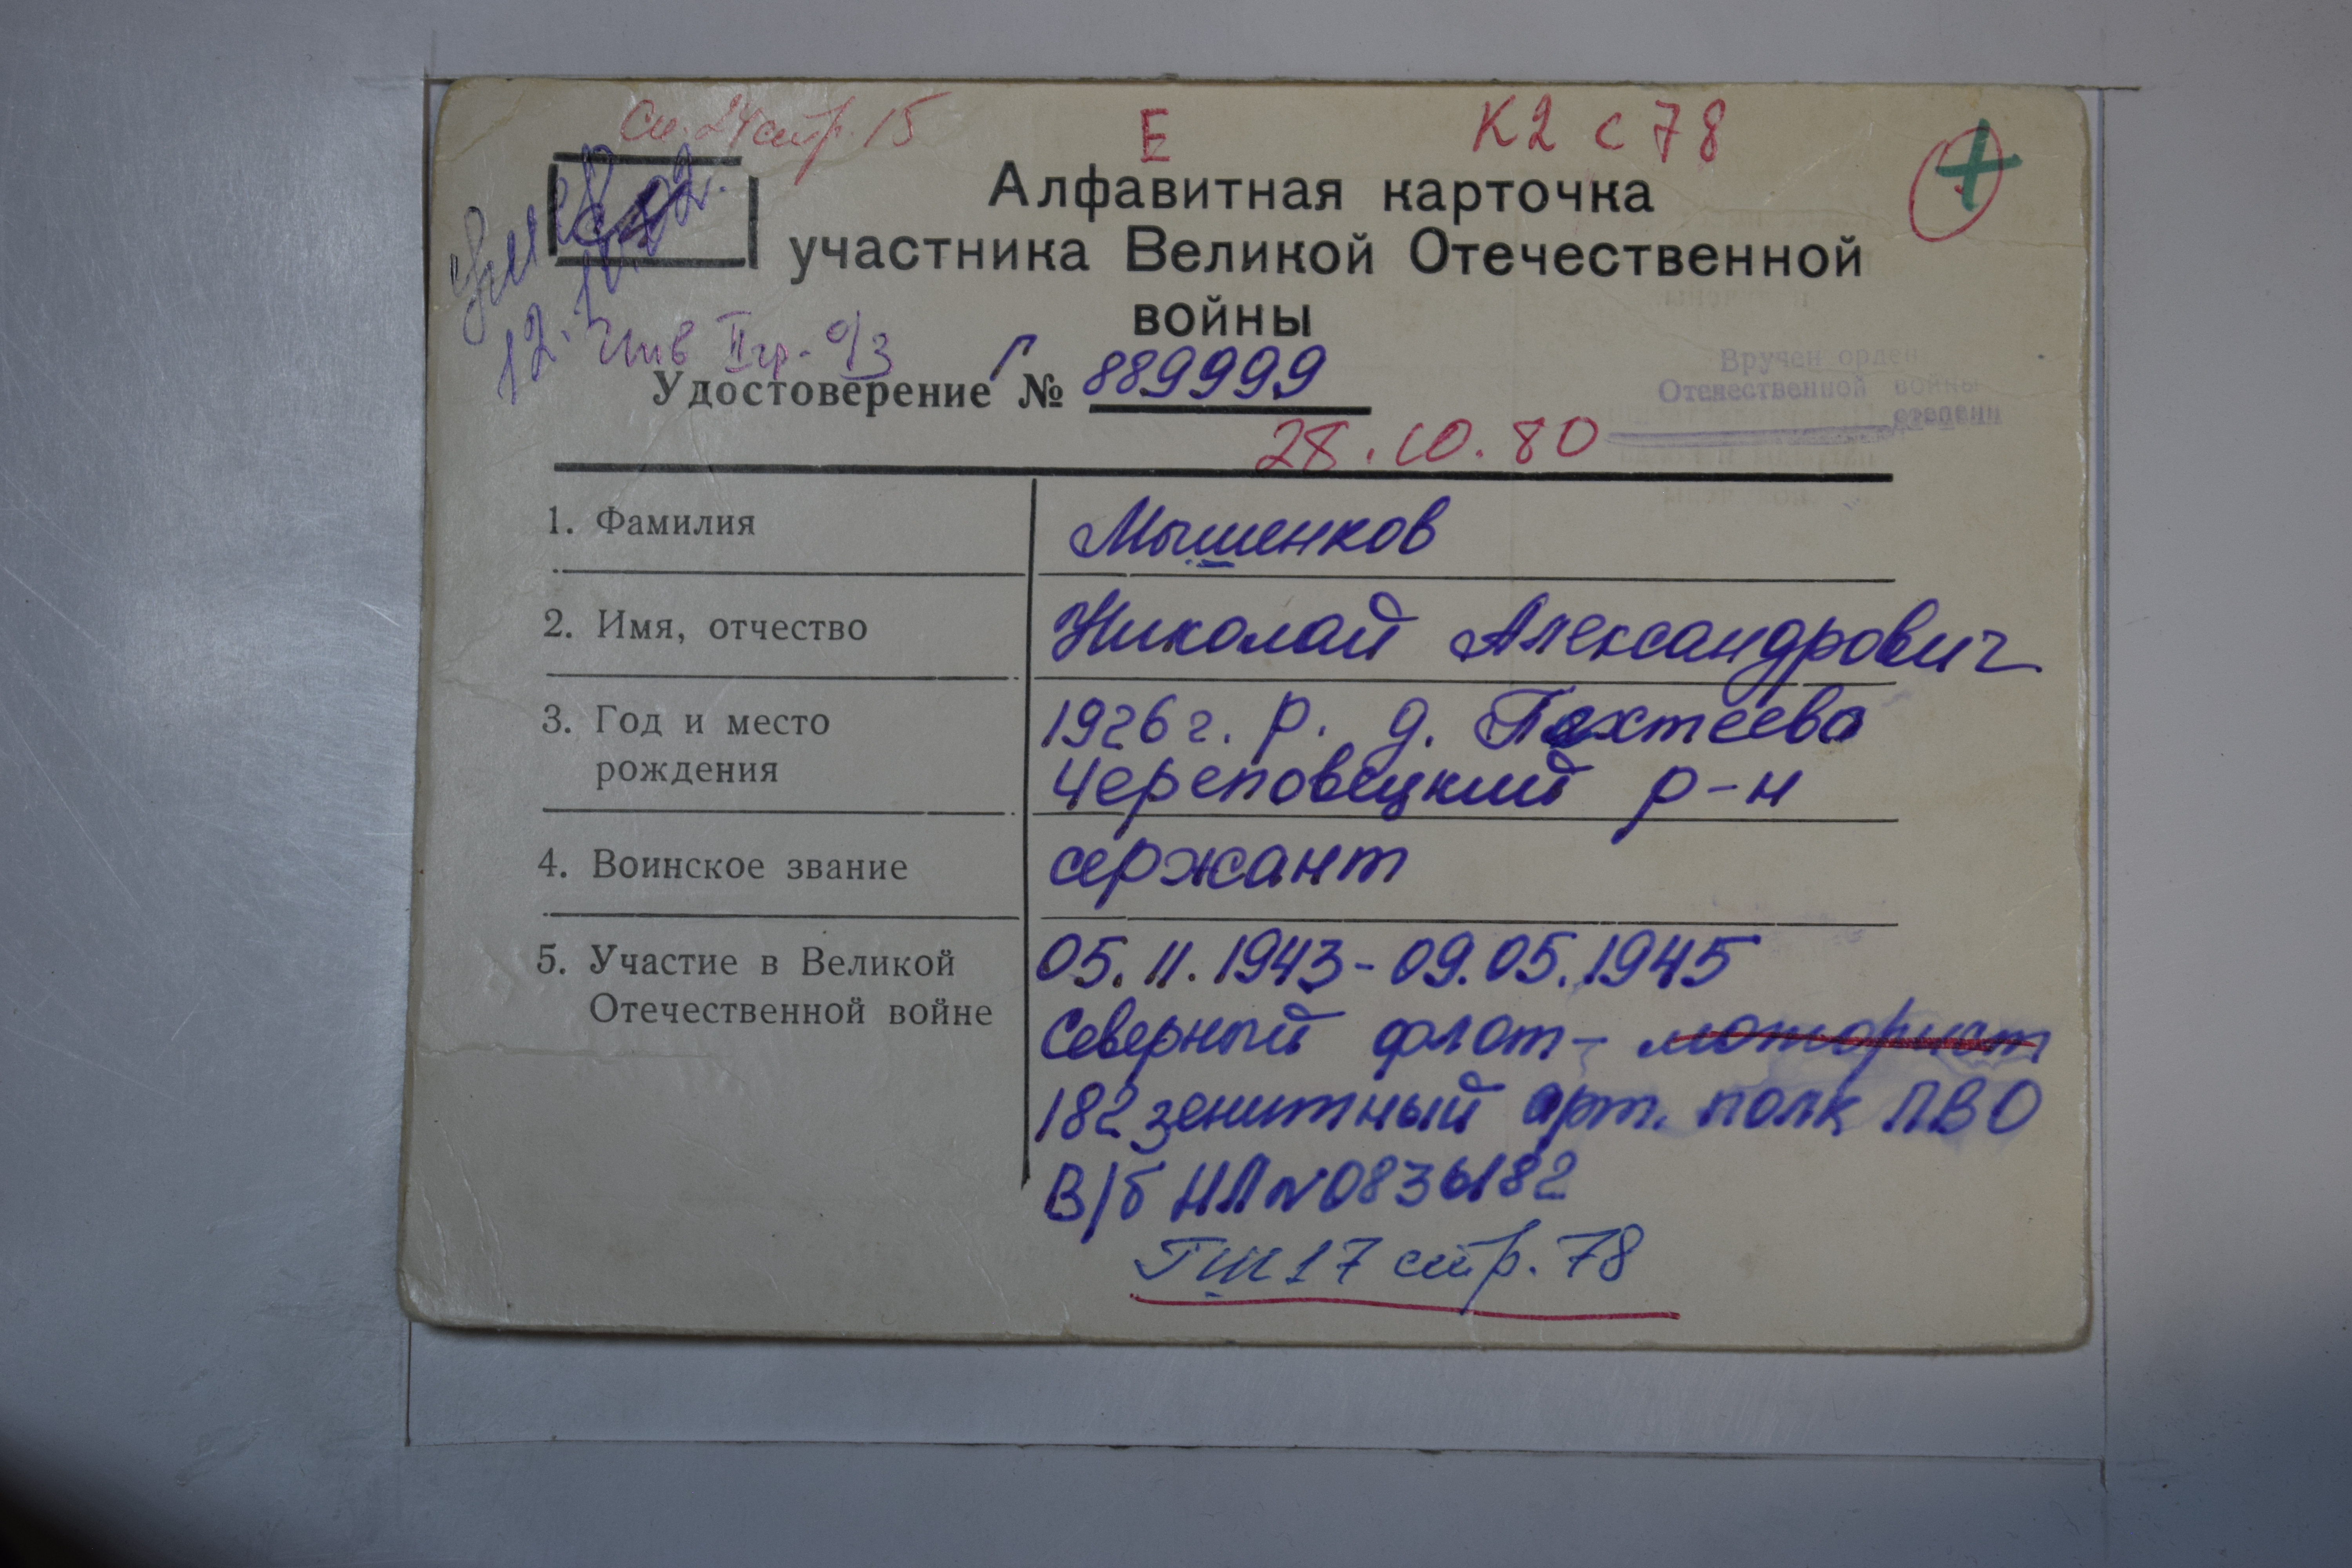 Сп. 24 стр. 15
Е
К2 с 78
Алфавитная карточка
участника Великой Отечественной
войны
Умер
12.10.02.
Инв II гр. о/з
Удостоверение Г № 889999
Вручен орден
Отечественной войны
степени
28.10.80
1. Фамилия Мышенков
2. Имя, отчество Николай Александрович
3. Год и место 1926 г. р. д. Пахтеево
рождения Череповецкий р-н
4. Воинское звание сержант
5. Участие в Великой 05.11.1943-09.05.1945
Отечественной войне Северный флот - моторист
182 зенитный арт. полк ПВО
В/б НЛ № 0836182
ГШ 17 стр. 78